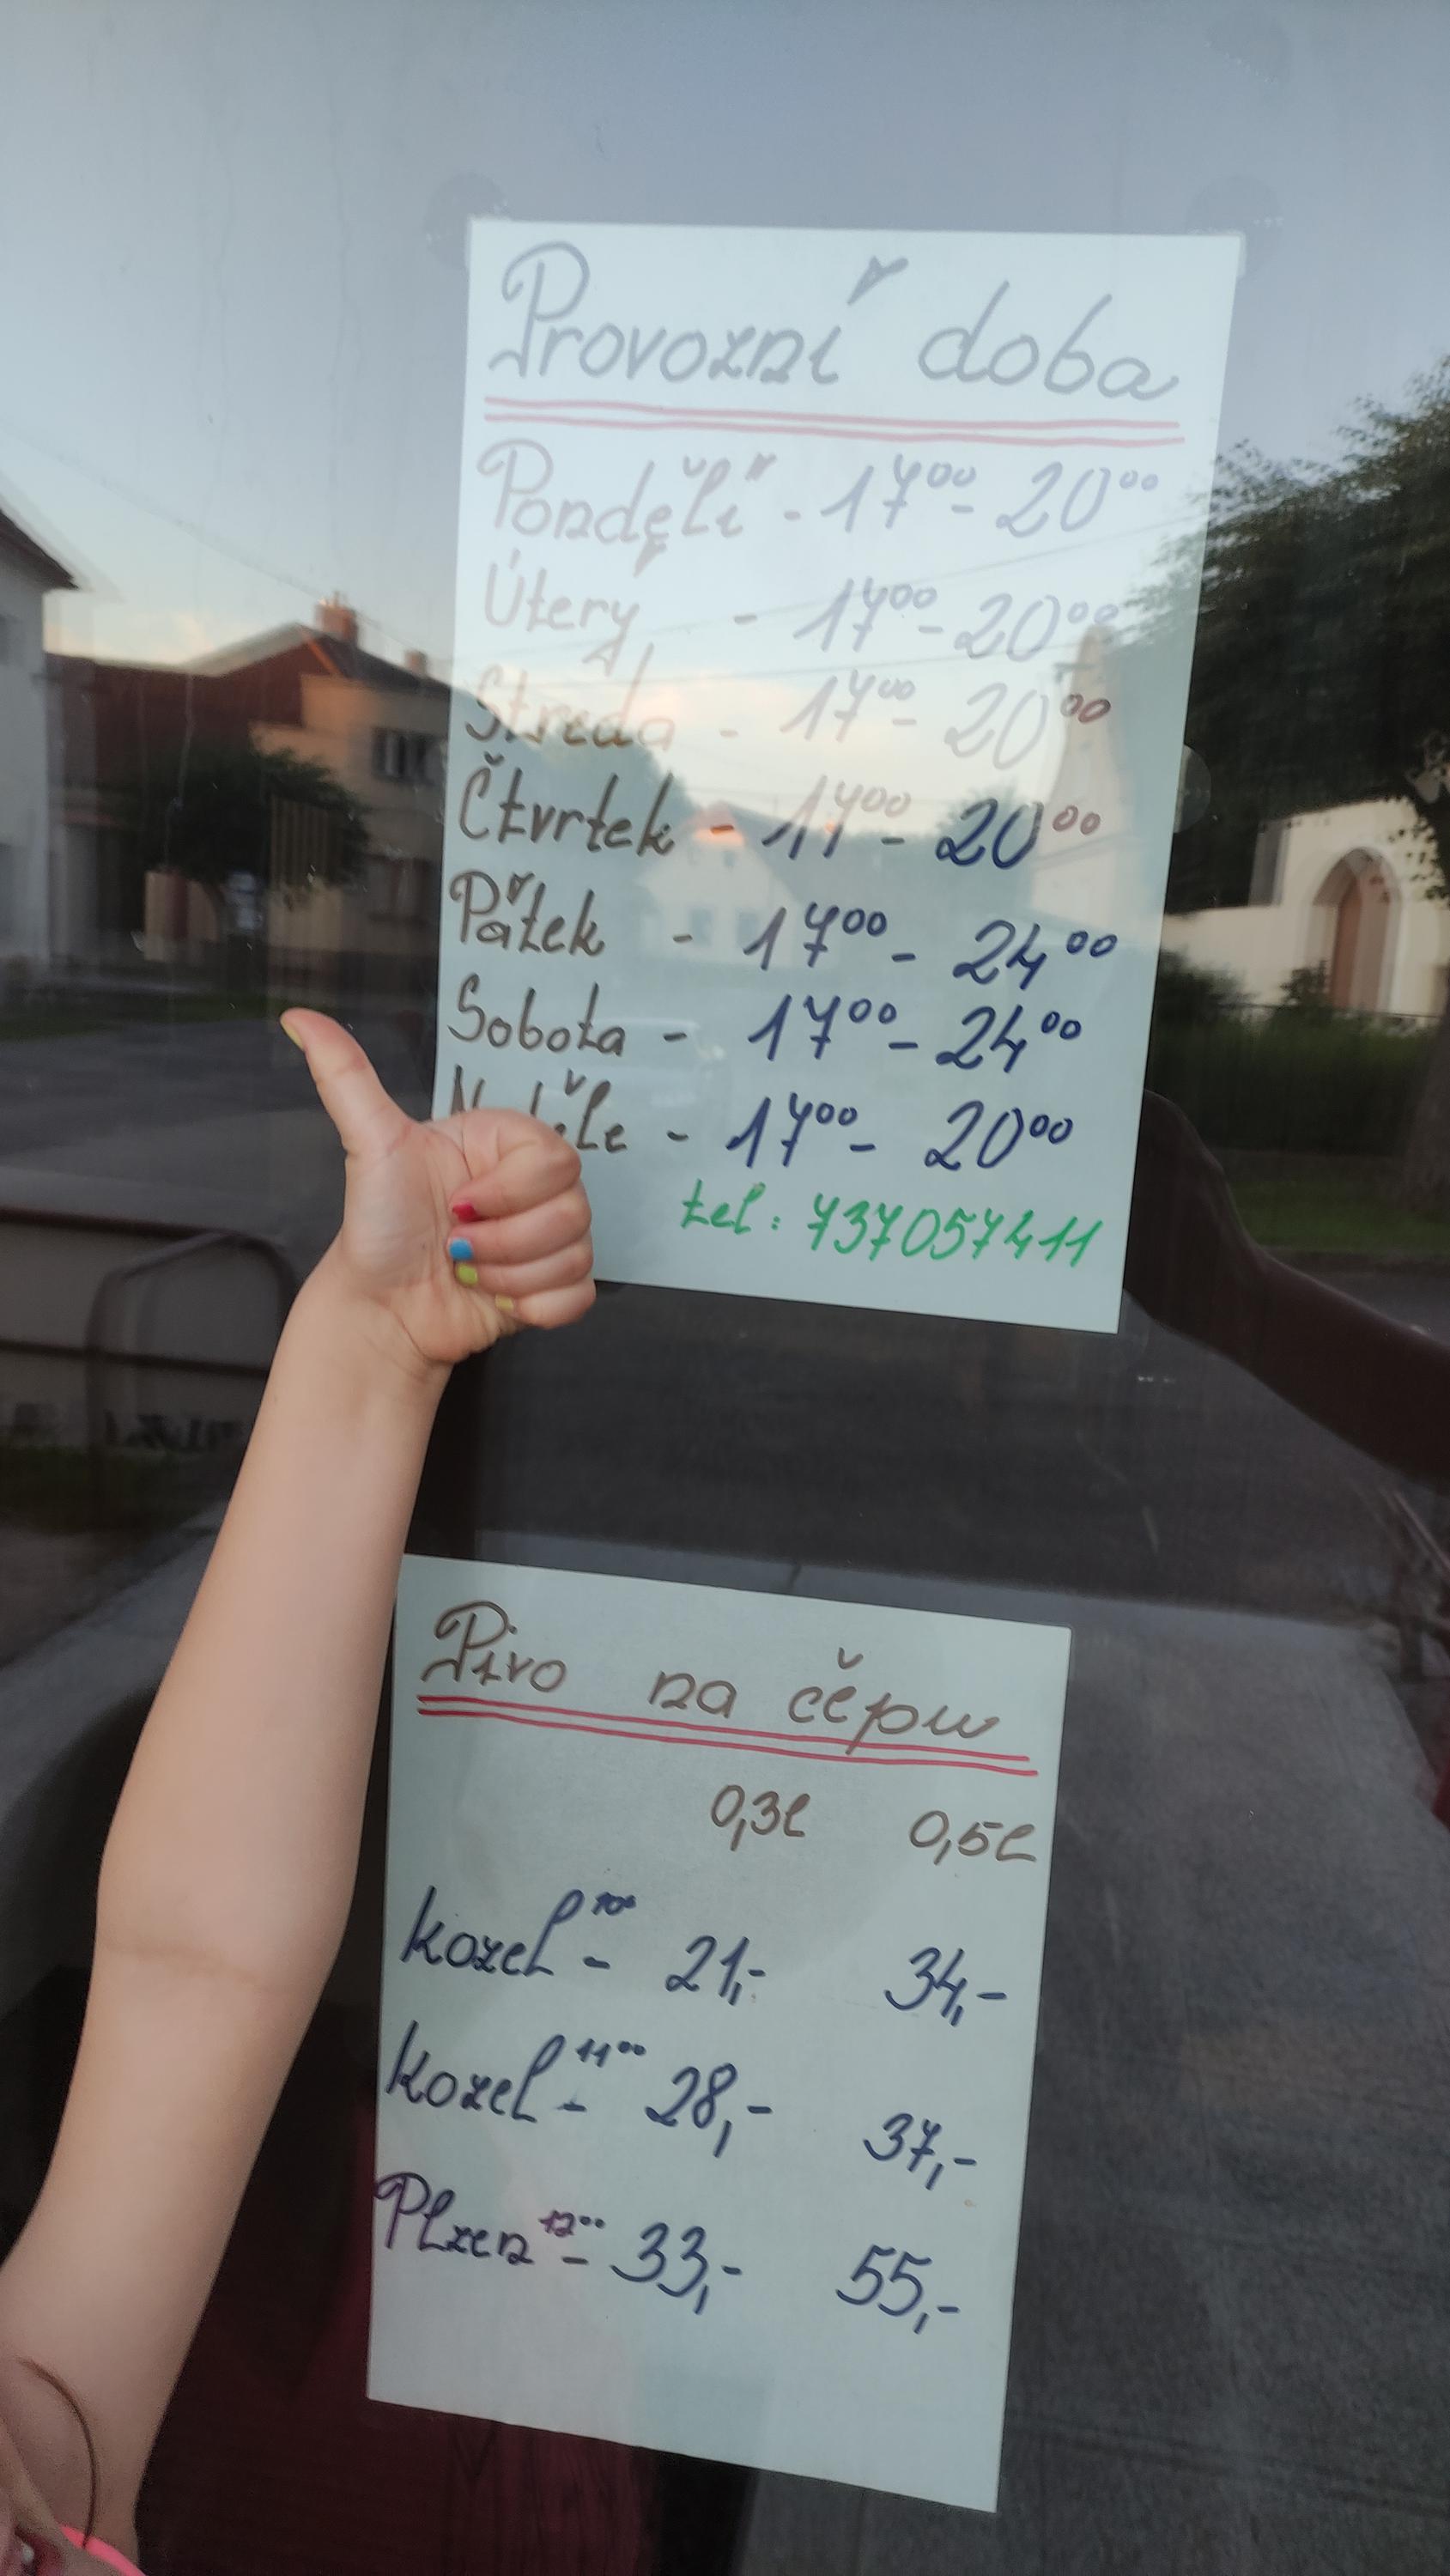 Provozní doba
Pondělí - 17⁰⁰ - 20⁰⁰
Úterý - 17⁰⁰ - 20⁰⁰
Středa - 17⁰⁰ - 20⁰⁰
Čtvrtek - 17⁰⁰ - 20⁰⁰
Pátek - 17⁰⁰ - 24⁰⁰
Sobota - 17⁰⁰ - 24⁰⁰
Neděle - 17⁰⁰ - 20⁰⁰
tel: 737057411
Pivo na čepu
0,3l 0,5l
kozel 10⁰⁰ - 21,- 34,-
kozel 11⁰⁰ - 28,- 37,-
Plzen 12⁰⁰ - 33,- 55,-